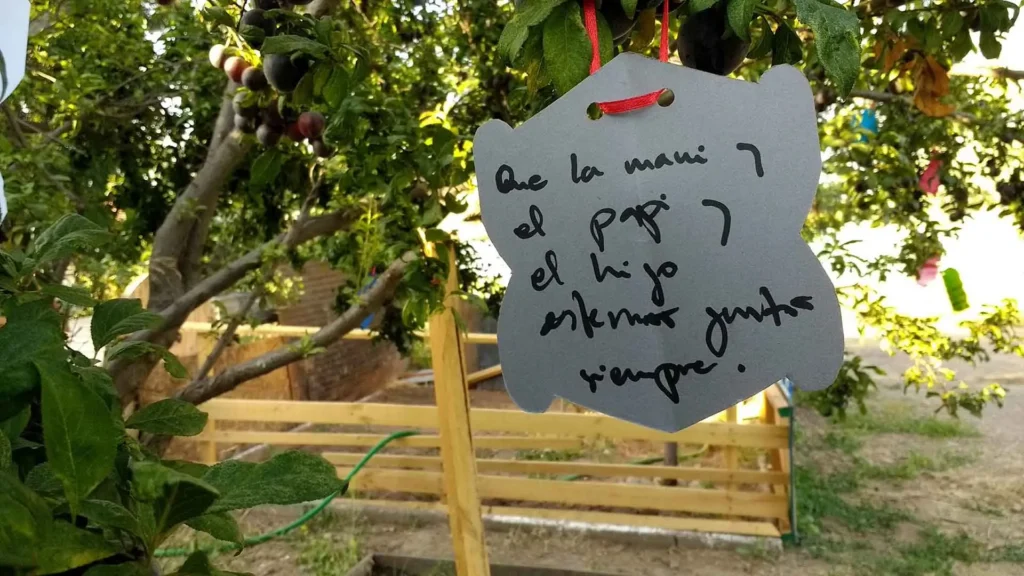 Que la mami y
el papi y
el hijo
estemos juntos
siempre.